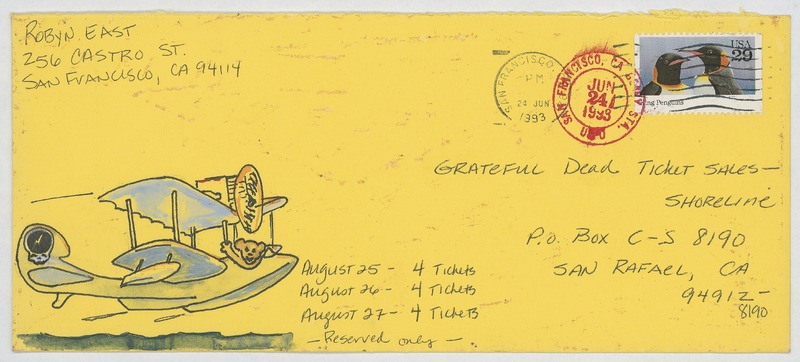 Robyn East
256 Castro St.
San Francisco, CA 94114
SAN FRANCISCO,
PM
24 JUN
1993
SAN FRANCISCO, CA
STA.
JUN
24
1993
USA
29
King Penguins
Grateful Dead Ticket Sales—
Shoreline
P.O. Box C-S 8190
San Rafael, CA
94912-
8190
August 25 - 4 Tickets
August 26 - 4 Tickets
August 27 - 4 Tickets
— Reserved only —